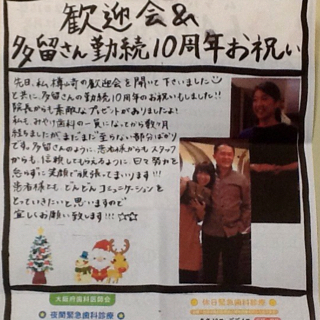 歓迎会&
多留さん勤続10周年お祝い
先日、私、樽﨑の歓迎会を開いて下さいました
と共に、多留さんの勤続10周年のお祝いもしました!!
院長からも素敵なプレゼントがありましたよ!
私も、みやけ歯科の一員になってから数ヶ月
経ちましたが、まだまだ至らない部分ばかり
です。多留さんのように、患者様からもスタッフ
からも、信頼してもらえるように、日々努力を
怠らずに笑顔で頑張ってまいります!!!
患者様とも どんどんコミュニケーションを
とっていきたいと思いますので
宜しくお願い致します!!! ☆☆
大阪府歯科医師会
夜間緊急歯科診療
休日緊急歯科診療